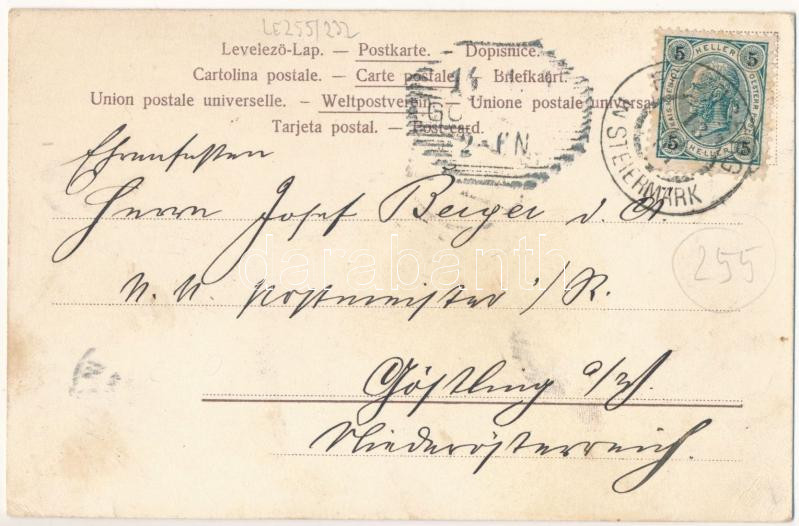 LE255/232
Levelező-Lap. — Postkarte. — Dopisnice.
Cartolina postale. — Carte postale. — Briefkaart.
Union postale universelle. — Weltpostverein. — Unione postale universa
Tarjeta postal. — Post-card.
5 HELLER 5
5 HELLER 5
STEIERMARK
14
2-6N
Ehrenfesten
Herrn Josef Berger d. A.
k. k. Postmeister i/R.
255
Göstling a/Y.
Niederösterreich.
darabanth